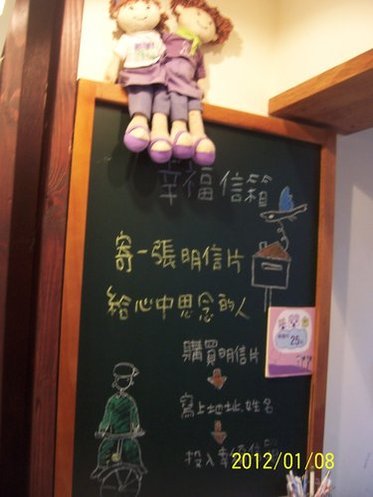 幸福信箱
寄一張明信片
給心中思念的人
購買明信片
寫上地址.姓名
投入幸福信
25元
2012/01/08